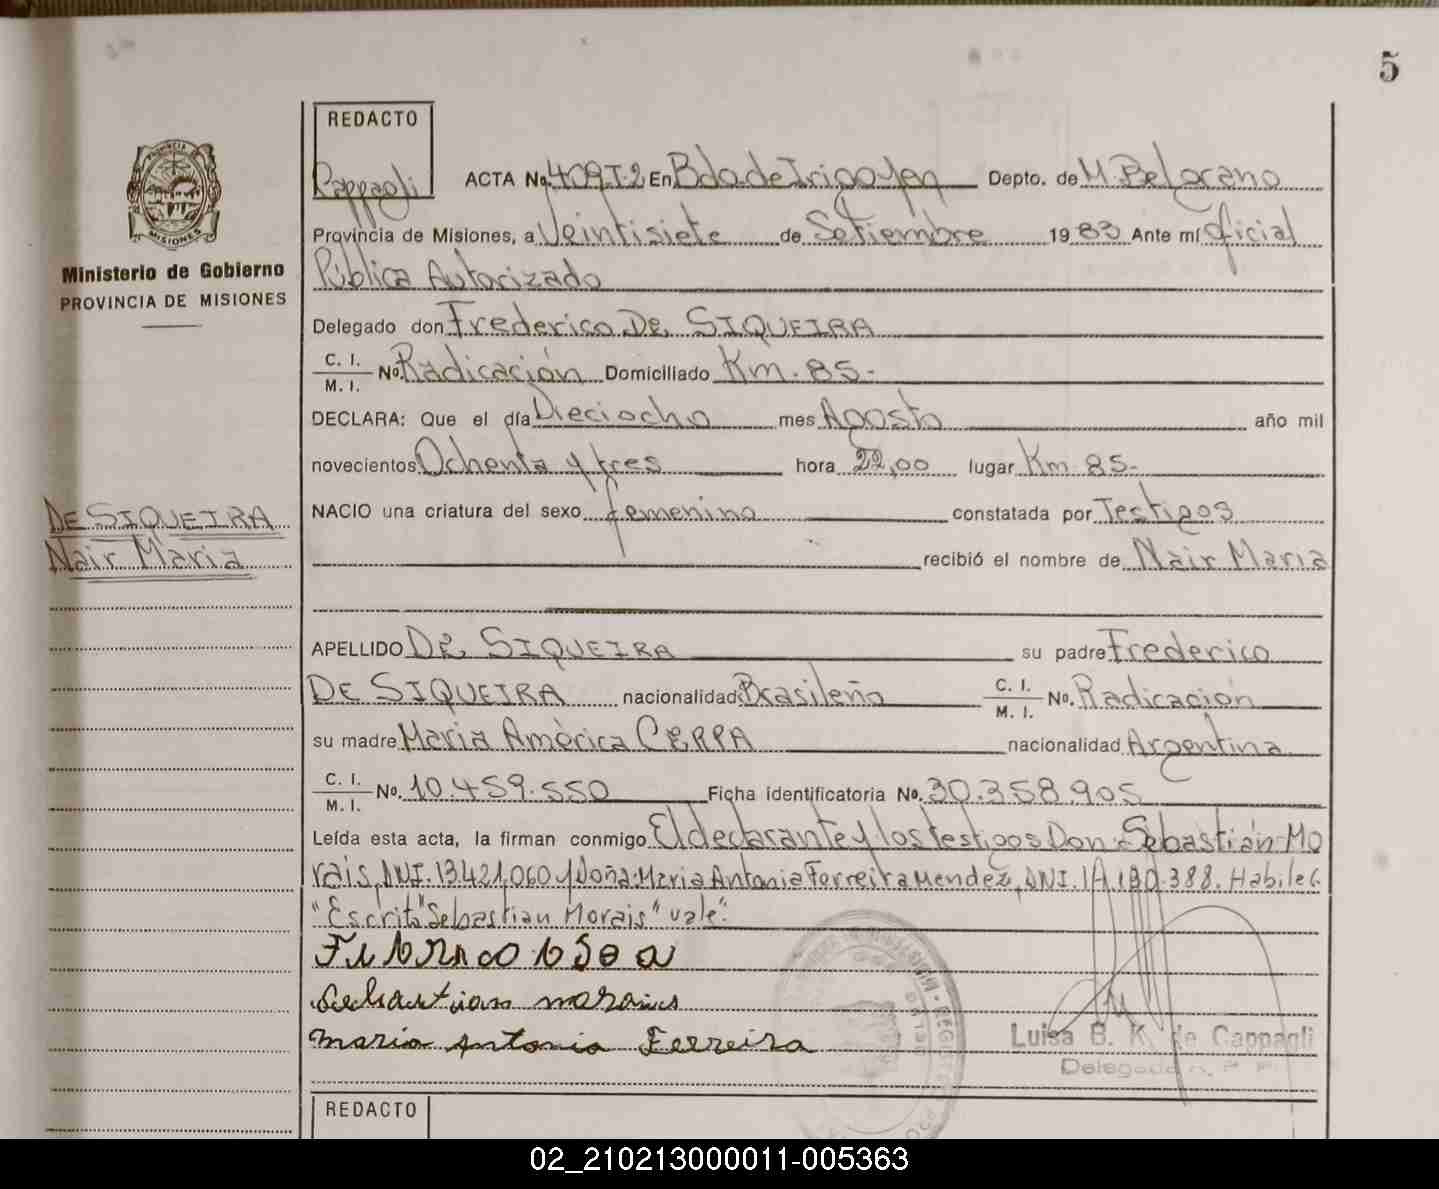 5
REDACTO
Cappagli
ACTA No. 409.T.2 En Bdo. de Irigoyen Depto. de M. Belgrano
Provincia de Misiones, a Veintisiete de Setiembre 1983 Ante mí Oficial
Pública Autorizado
Delegado don Frederico DE SIQUEIRA
C. I.
M. I. No. Radicación Domiciliado Km. 85.-
DECLARA: Que el día Dieciocho mes Agosto año mil
novecientos Ochenta y tres hora 22,00 lugar Km 85.-
NACIO una criatura del sexo femenino constatada por Testigos
recibió el nombre de Nair Maria
APELLIDO DE SIQUEIRA su padre Frederico
DE SIQUEIRA nacionalidad Brasileño C. I.
M. I. No. Radicación
su madre Maria América CERPA nacionalidad Argentina
C. I.
M. I. No. 10.459.550 Ficha identificatoria No. 30.358.905
Leída esta acta, la firman conmigo El declarante y los testigos Don Sebastián Mo
rais, DNI. 13.421.060 y Doña: Maria Antonia Ferreira Mendez, DNI. 14.180.388. Habiles.
"Escrito "Sebastian Morais" vale".
Sebastian morais
Maria Antonia Ferreira
Luisa B. K. de Cappagli
Delegada
REDACTO
PROVINCIA DE
MISIONES
Ministerio de Gobierno
PROVINCIA DE MISIONES
DE SIQUEIRA
Nair Maria
02_210213000011-005363